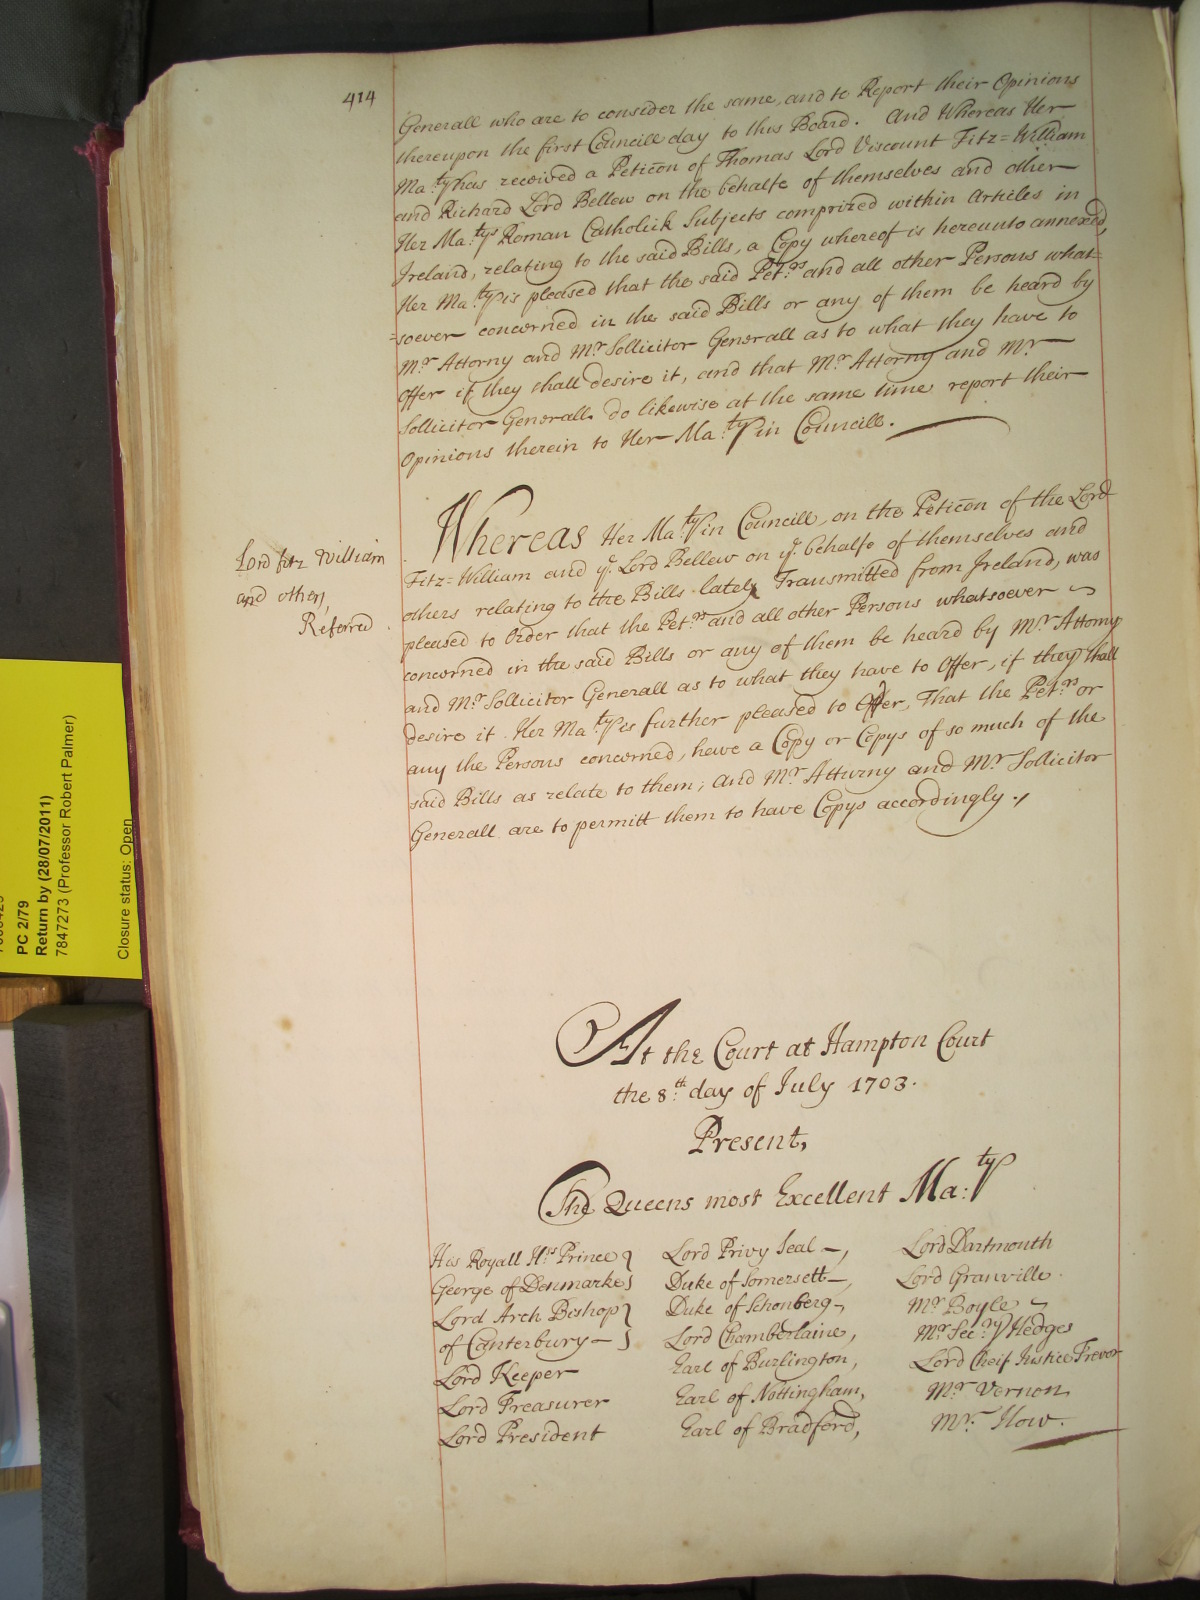 414
Generall who are to consider the same, and to Report their Opinions
thereupon the first Councill day to this Board. And Whereas Her
Ma:ty has received a Peticōn of Thomas Lord Viscount Fitz=William
and Richard Lord Bellew on the behalfe of themselves and other
Her Ma:tys Roman Catholick Subjects comprized within Articles in
Ireland, relating to the said Bills, a Copy whereof is hereunto annexed,
Her Ma:ty is pleased that the said Pet:rs and all other Persons what=
=soever concerned in the said Bills or any of them be heard by
Mr Attorny and Mr Sollicitor Generall as to what they have to
Offer if they shall desire it, and that Mr Attorny and Mr
Sollicitor Generall do likewise at the same time report their
Opinions therein to Her Ma:ty in Councill.
Lord fitz William
and others,
Referred
Whereas Her Ma:ty in Councill, on the Peticōn of the Lord
Fitz=William and ye Lord Bellew on ye behalfe of themselves and
others relating to the Bills lately Transmitted from Ireland, was
pleased to Order that the Pet:rs and all other Persons whatsoever
concerned in the said Bills or any of them be heard by Mr Attorny
and Mr Sollicitor Generall as to what they have to Offer, if they shall
desire it. Her Ma:ty is further pleased to Offer, That the Pet:rs or
any the Persons concerned, have a Copy or Copys of so much of the
said Bills as relate to them; And Mr Atturny and Mr Sollicitor
Generall are to permitt them to have Copys accordingly.
At the Court at Hampton Court
the 8:th day of July 1703.
Present,
The Queens most Excellent Ma:ty
His Royall H:s Prince
George of Denmarke
Lord Arch Bishop
of Canterbury
Lord Keeper
Lord Treasurer
Lord President
Lord Privy Seal
Duke of Somersett
Duke of Schonberg
Lord Chamberlaine,
Earl of Burlington,
Earl of Nottingham,
Earl of Bradford,
Lord Dartmouth
Lord Granville
Mr Boyle
Mr Sec:ry Hedges
Lord Cheif Justice Trevor
Mr Vernon
Mr How.
PC 2/79
Return by (28/07/2011)
7847273 (Professor Robert Palmer)
Closure status: Open